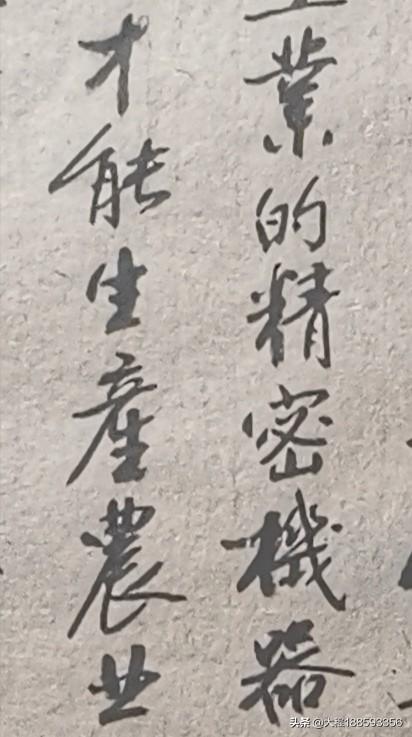 業的精密機器
才能生產農业
头条 @大程188593356